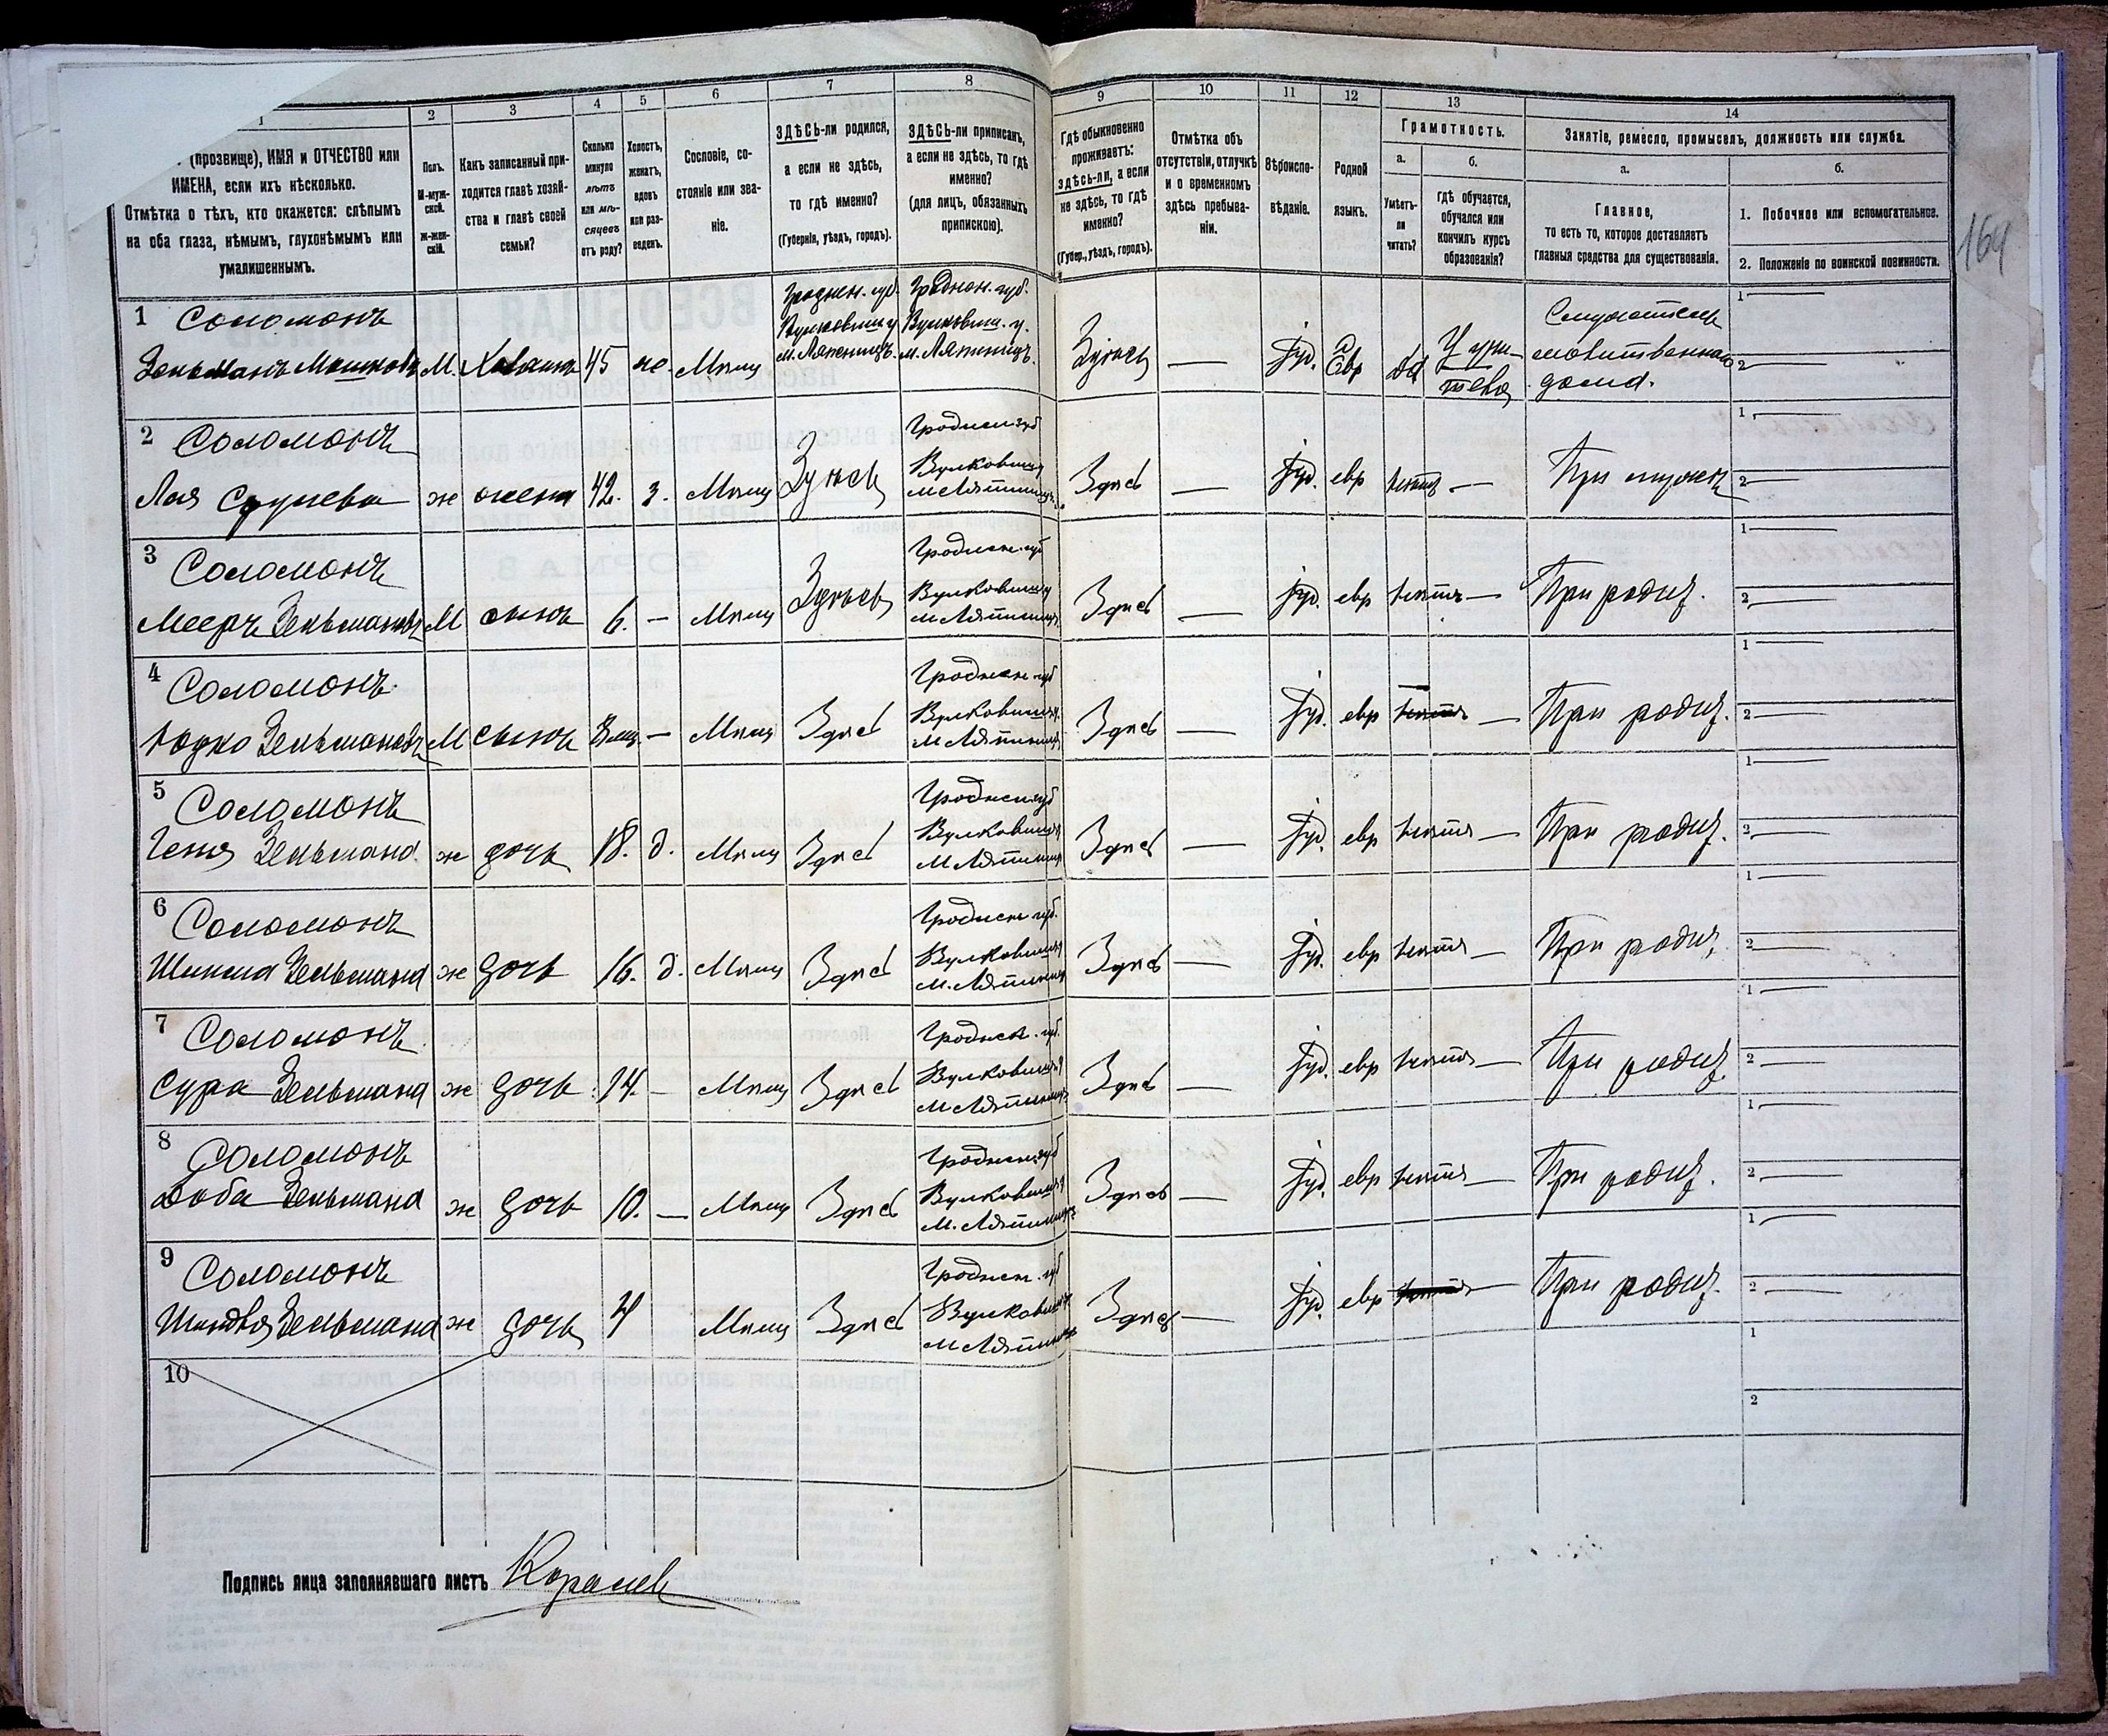 1 2 3 4 5 6 7 8 9 10 11 12 13 14
(прозвище), ИМЯ и ОТЧЕСТВО или
ИМЕНА, если ихъ нѣсколько.
Отмѣтка о тѣхъ, кто окажется: слѣпымъ
на оба глаза, нѣмымъ, глухонѣмымъ или
умалишеннымъ.
Полъ.
М-муж-
ской.
Ж-жен-
скій.
Какъ записанный при-
ходится главѣ хозяй-
ства и главѣ своей
семьи?
Сколько
минуло
лѣтъ
или мѣ-
сяцевъ
отъ роду?
Холостъ,
женатъ,
вдовъ
или раз-
веденъ.
Сословіе, со-
стояніе или зва-
ніе.
ЗДѢСЬ-ли родился,
а если не здѣсь,
то гдѣ именно?
(Губернія, уѣздъ, городъ).
ЗДѢСЬ-ли приписанъ,
а если не здѣсь, то гдѣ
именно?
(для лицъ, обязанныхъ
припискою).
Гдѣ обыкновенно
проживаетъ:
здѣсь-ли, а если
не здѣсь, то гдѣ
именно?
(Губер., уѣздъ, городъ).
Отмѣтка объ
отсутствіи, отлучкѣ
и о временномъ
здѣсь пребыва-
ніи.
Вѣроиспо-
вѣданіе.
Родной
языкъ.
Грамотность.
а.
Умѣетъ-
ли
читать?
б.
Гдѣ обучается,
обучался или
кончилъ курсъ
образованія?
Занятіе, ремесло, промыселъ, должность или служба.
а.
Главное,
то есть то, которое доставляетъ
главныя средства для существованія.
б.
1. Побочное или вспомогательное.
2. Положеніе по воинской повинности.
164
1 Соломонъ Гроднен. губ. Гроднен. губ. 1
Зельманъ Мошковъ М. Хозяинъ 45 же. Мѣщ Здѣсь — Іуд. Евр да
молитвеннаго 2
дома.
2 Соломонъ Гроднен губ 1
Лея ж жена 42. з. Мѣщ Здѣсь Здѣсь — Іуд. евр нѣтъ — При мужѣ 2
3 Соломонъ Гроднен губ 1
Мееръ Зельмановъ М сынъ 6. — Мѣщ Здѣсь Здѣсь — Іуд. евр нѣтъ — При родит. 2
4 Соломонъ Гроднен губ 1
Юдко Зельмановъ М сынъ — Мѣщ Здѣсь Здѣсь — Іуд. евр нѣтъ — При родит. 2
5 Соломонъ Гроднен губ 1
Геня Зельмана. ж дочь 18. д. Мѣщ Здѣсь Здѣсь — Іуд. евр нѣтъ — При родит. 2
6 Соломонъ Гроднен губ. 1
Зельмана ж дочь 16. д. Мѣщ Здѣсь Здѣсь — Іуд. евр нѣтъ — При родит. 2
7 Соломонъ Гроднен. губ. 1
Сура Зельмана ж дочь 14. — Мѣщ Здѣсь Здѣсь — Іуд. евр нѣтъ — При родит. 2
8 Соломонъ Гроднен губ 1
Доба Зельмана ж дочь 10. — Мѣщ Здѣсь Здѣсь — Іуд. евр нѣтъ — При родит. 2
9 Соломонъ Гроднен. губ 1
Зельмана ж дочь 4 Мѣщ Здѣсь Здѣсь — Іуд. евр нѣтъ — При родит. 2
10 1
2
Подпись лица заполнявшаго листъ